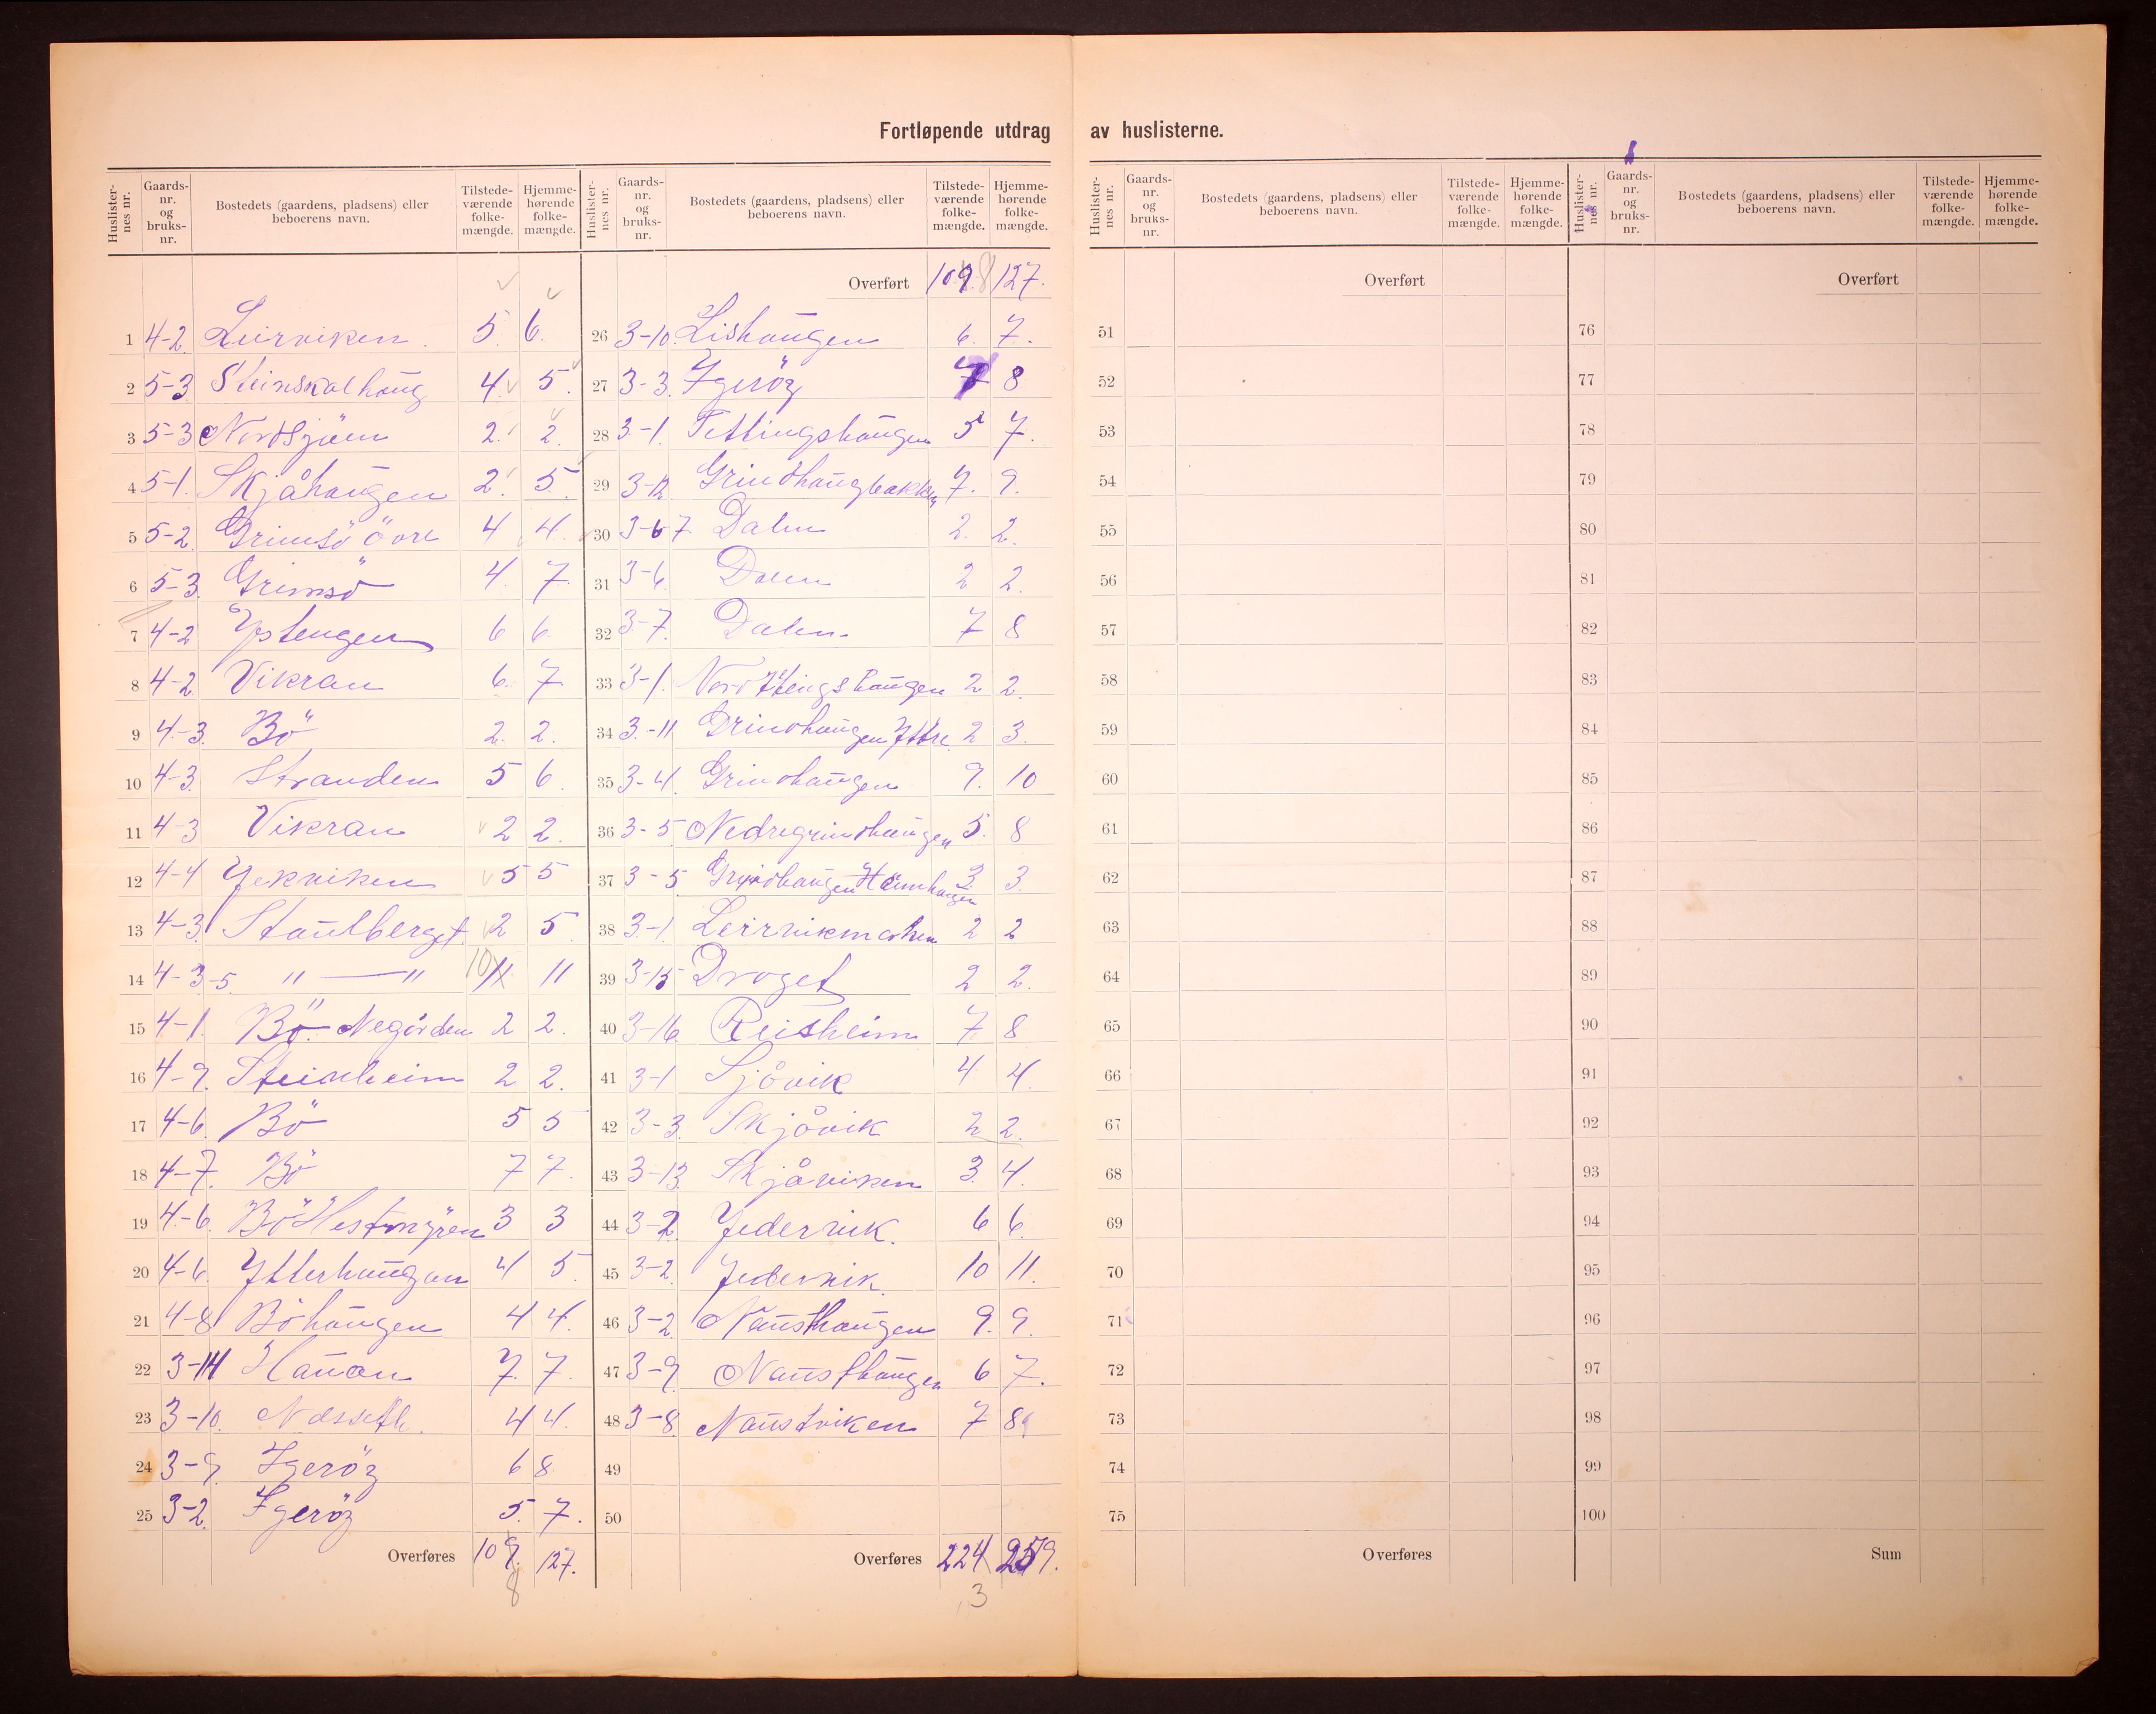 Fortløpende utdrag av huslisterne.
Huslisternes nr. Gaardsnr. og bruksnr. Bostedets (gaardens, pladsens) eller beboerens navn. Tilstedeværende folkemængde. Hjemmehørende folkemængde.
1 4-2 Leirviken 5 6
2 5-3 Steinskalhaug 4 5
3 5-3 Nordsjøen 2 2
4 5-1 Skjåhaugen 2 5
5 5-2 Grimsö Övre 4 4
6 5-3 Grimsö 4 7
7 4-2 Ystengen 6 6
8 4-2 Vikran 6 7
9 4-3 Bö 2 2
10 4-3 Stranden 5 6
11 4-3 Vikran 2 2
12 4-4 Jekviken 5 5
13 4-3 Staulberget 2 5
14 4-3-5 " — " 10 11 11
15 4-1 Bö Negården 2 2
16 4-9 Steinheim 2 2
17 4-6 Bö 5 5
18 4-7 Bö 7 7
19 4-6 Bö Hestmyren 3 3
20 4-6 Ytterhaugan 4 5
21 4-8 Böhaugen 4 4
22 3-14 Hauan 7 7
23 3-10 Næsseth 4 4
24 3-9 Igeröy 6 8
25 3-2 Igeröy 5 7
Overføres 109 127
8
Huslisternes nr. Gaardsnr. og bruksnr. Bostedets (gaardens, pladsens) eller beboerens navn. Tilstedeværende folkemængde. Hjemmehørende folkemængde.
Overført 109 8 127
26 3-10 Lishaugen 6 7
27 3-3 Igeröy 7 8
28 3-1 Tettingshaugen 5 7
29 3-12 Grindhaugbakken 7 9
30 3-67 Dalen 2 2
31 3-6 Dalen 2 2
32 3-7 Dalen 7 8
33 3-1 2 2
34 3-11 Grindhaugen Yttre 2 3
35 3-4 Grindhaugen 9 10
36 3-5 Nedregrindhaugen 5 8
37 3-5 Grindhaugen 3 3
38 3-1 Leirvikmarken 2 2
39 3-15 Draget 2 2
40 3-16 Reisheim 7 8
41 3-1 Sjövik 4 4
42 3-3 Skjåvik 2 2
43 3-13 Skjåviken 3 4
44 3-2 Jedervik 6 6
45 3-2 Jedervik 10 11
46 3-2 Nausthaugen 9 9
47 3-9 Nausthaugen 6 7
48 3-8 Naustviken 7 8
49
50
Overføres 224 259
3
Huslisternes nr. Gaardsnr. og bruksnr. Bostedets (gaardens, pladsens) eller beboerens navn. Tilstedeværende folkemængde. Hjemmehørende folkemængde.
Overført
51
52
53
54
55
56
57
58
59
60
61
62
63
64
65
66
67
68
69
70
71
72
73
74
75
Overføres
Huslisternes nr. Gaardsnr. og bruksnr. Bostedets (gaardens, pladsens) eller beboerens navn. Tilstedeværende folkemængde. Hjemmehørende folkemængde.
Overført
76
77
78
79
80
81
82
83
84
85
86
87
88
89
90
91
92
93
94
95
96
97
98
99
100
Sum